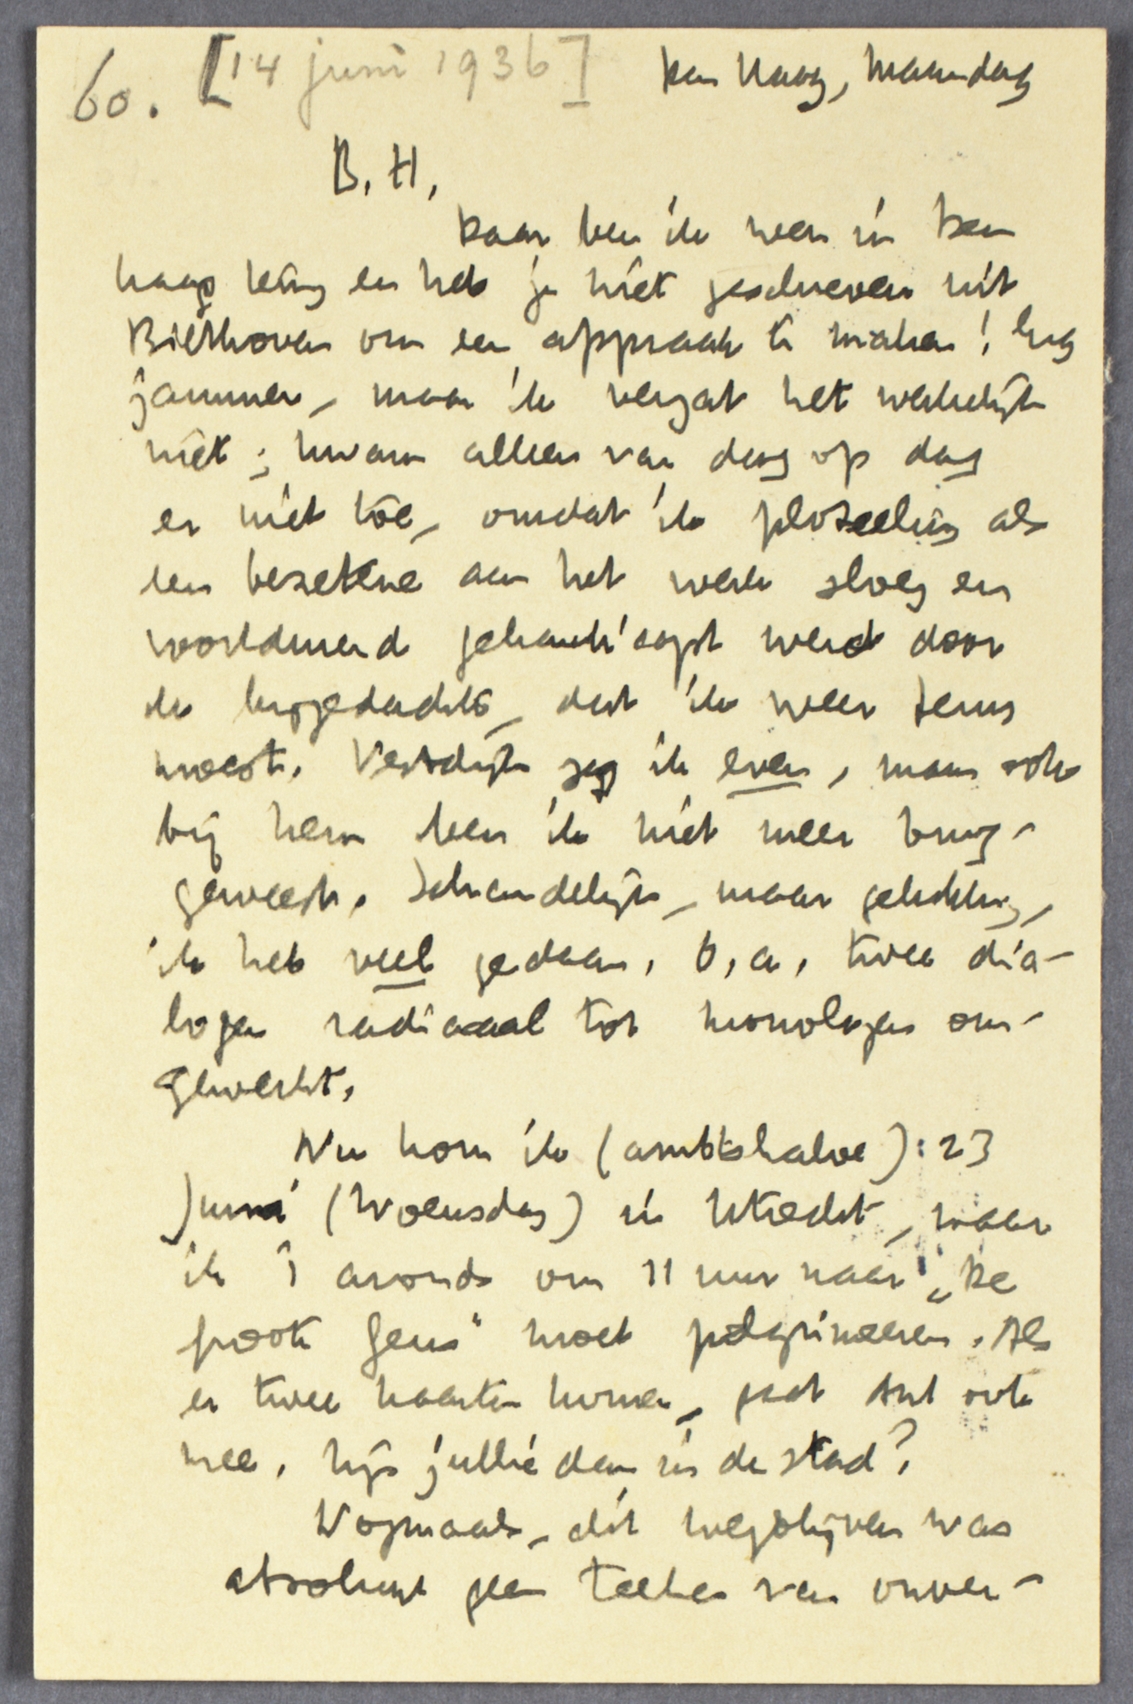 60. [14 juni 1936] Den Haag, Maandag
B.H,
Daar ben ik weer in Den
Haag terug en heb je niet geschreven uit
Bilthoven om een afspraak te maken! Erg
jammer, maar ik vergat het werkelijk
niet; kwam alleen van dag op dag
er niet toe, omdat ik plotseling als
een bezetene aan het werk sloeg en
voortdurend gehandicapt werd door
de bijgedachte, dat ik weer terug
moest. Vestdijk zag ik even, maar ook
bij hem ben ik niet meer terug-
geweest. Schandelijk, maar gelukkig,
ik heb veel gedaan, o,a, twee dia-
logen radicaal tot monologen om-
gewerkt.
Nu kom ik (ambtshalve): 23
Juni (Woensdag) in Utrecht, waar
ik 's avonds om 11 uur naar „De
groote Geus" moet pelgrimeeren. Als
er twee kaarten komen, gaat Ant ook
mee. Zijn jullie dan in de stad?
Nogmaals, dit wegblijven was
absoluut geen teeken van onver-